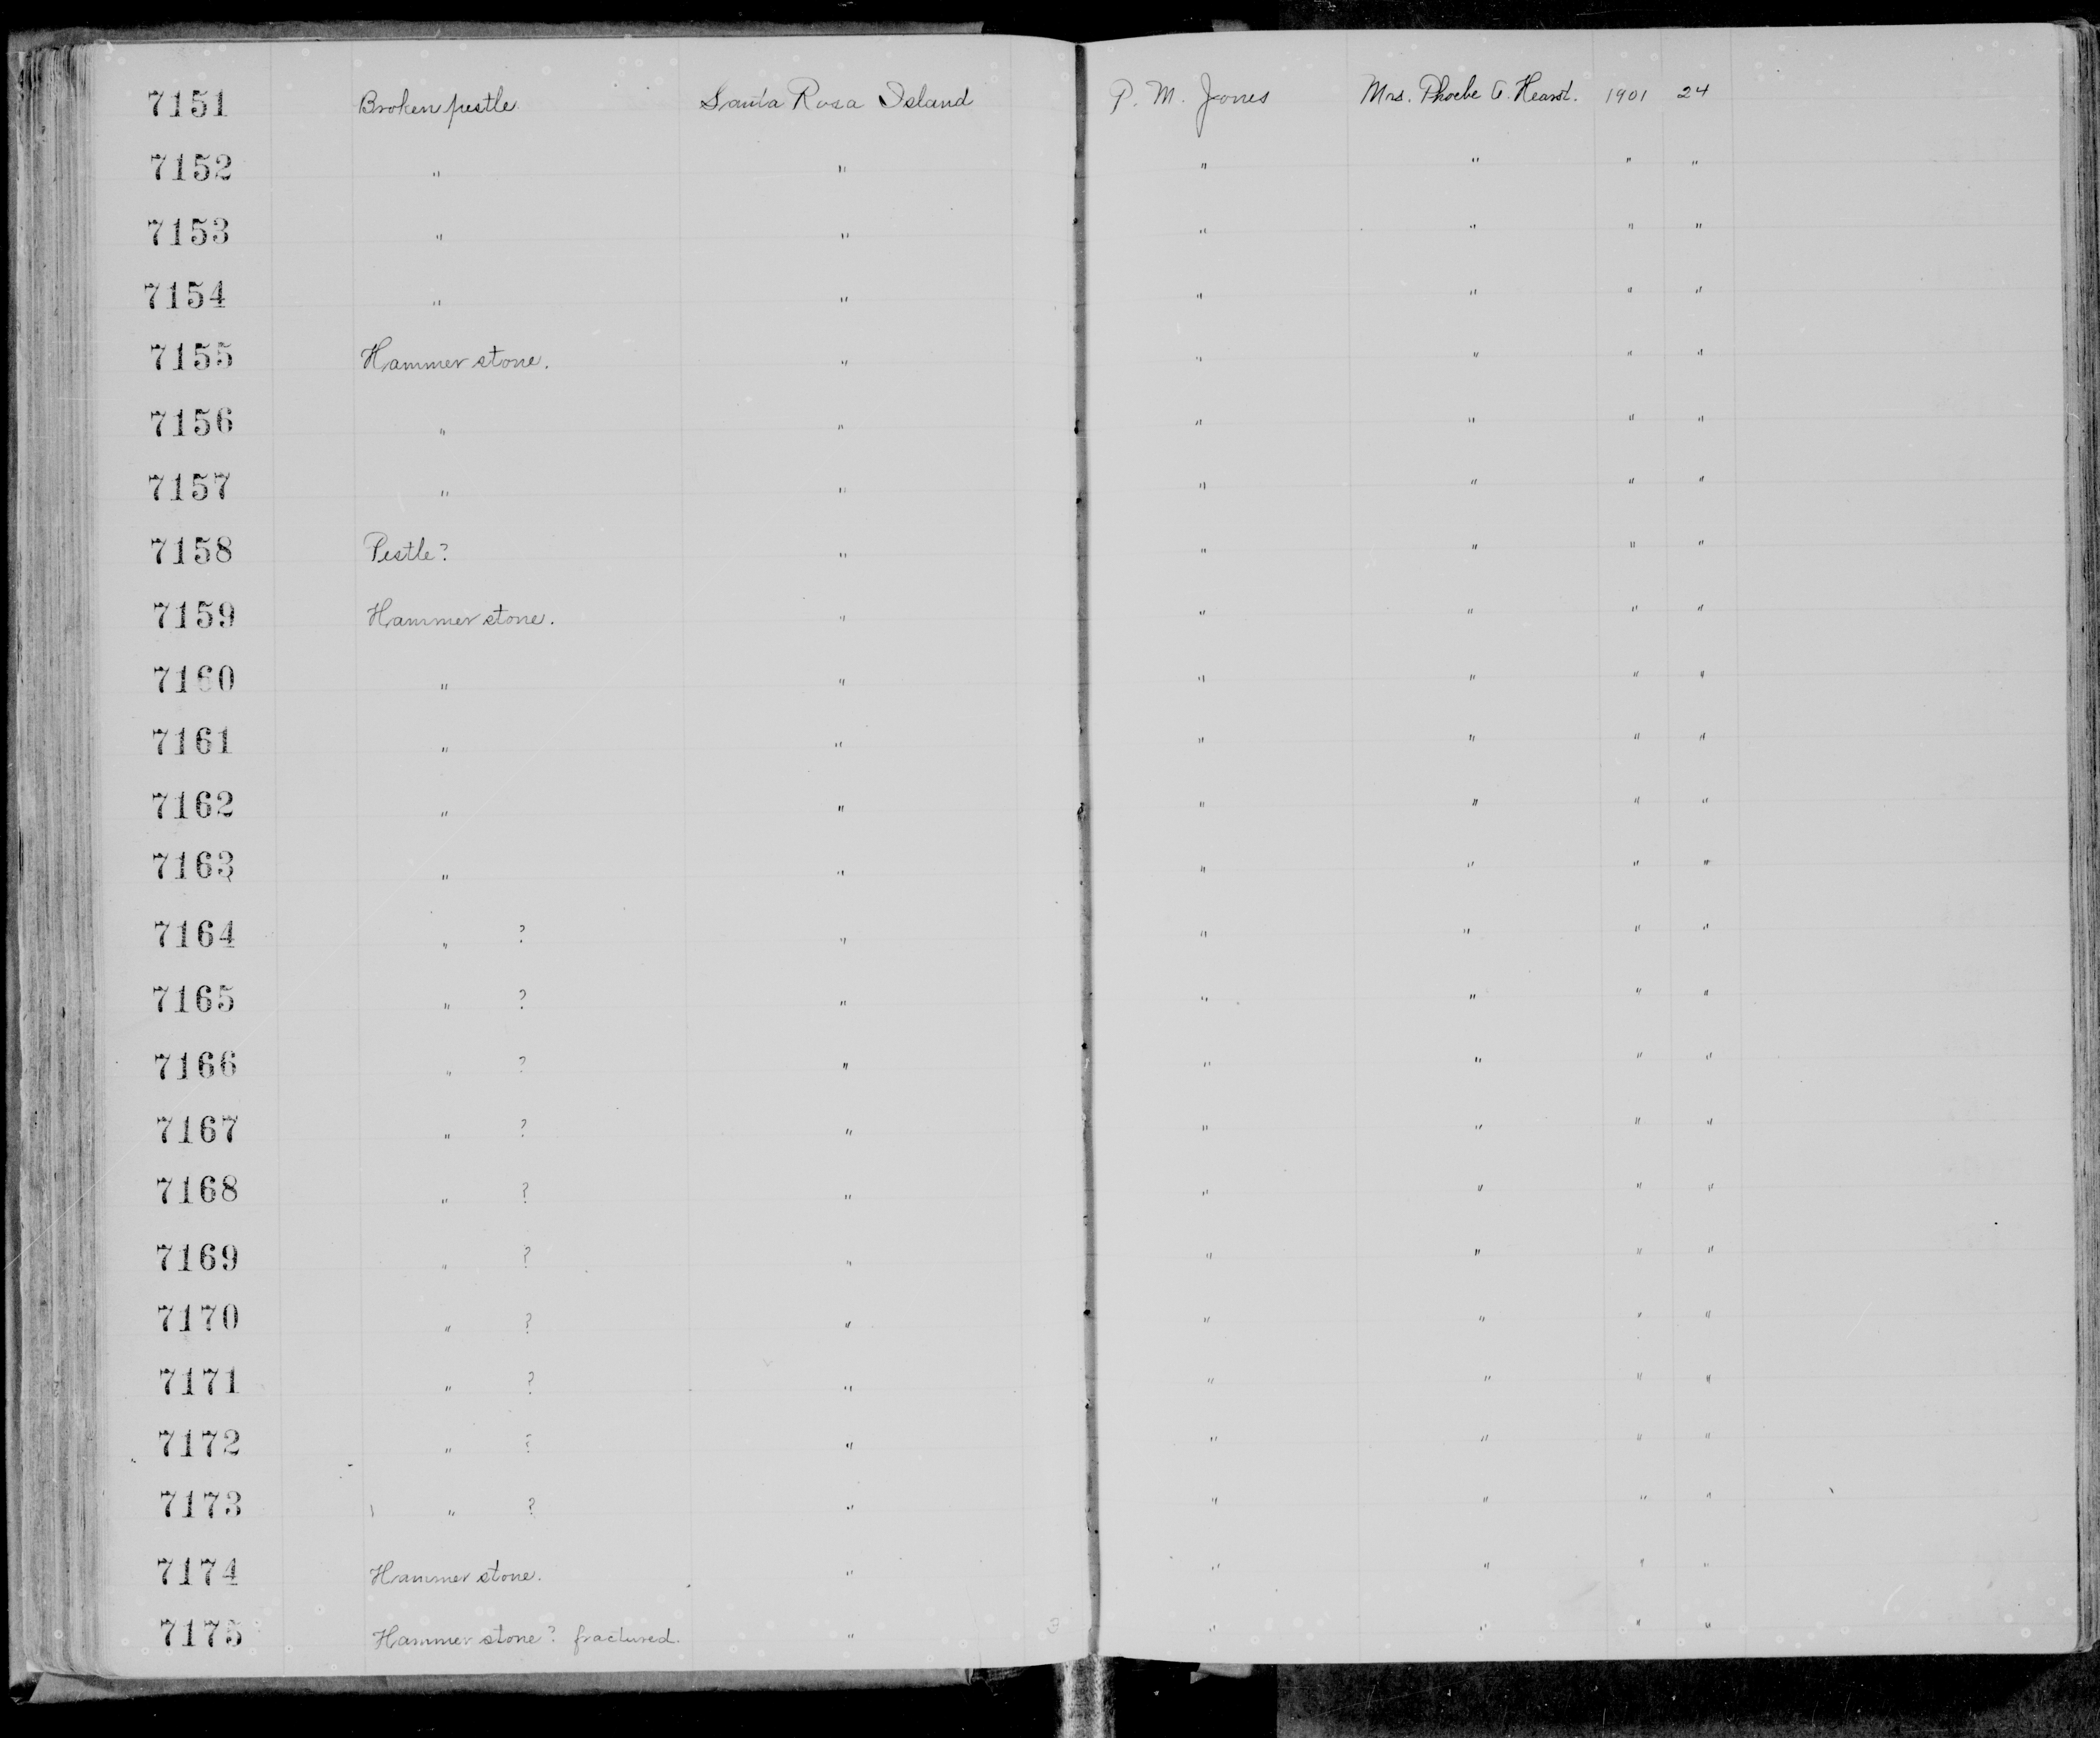 7151 Broken pestle Santa Rosa Island P. M. Jones Mrs. Phoebe A. Hearst. 1901 24
7152 " " " " " "
7153 " " " " " "
7154 " " " " " "
7155 Hammer stone. " " " " "
7156 " " " " " "
7157 " " " " " "
7158 Pestle? " " " " "
7159 Hammer stone. " " " " "
7160 " " " " " "
7161 " " " " " "
7162 " " " " " "
7163 " " " " " "
7164 " ? " " " " "
7165 " ? " " " " "
7166 " ? " " " " "
7167 " ? " " " " "
7168 " ? " " " " "
7169 " ? " " " " "
7170 " ? " " " " "
7171 " ? " " " " "
7172 " ? " " " " "
7173 " ? " " " " "
7174 Hammer stone. " " " " "
7175 Hammer stone? fractured. " " " " "